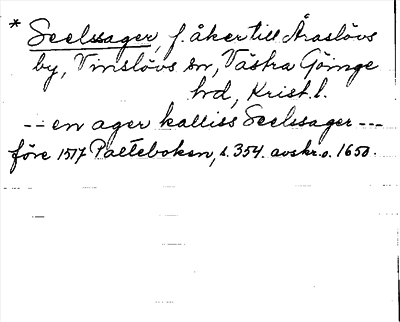 * Seelssager, f. åker till Araslövs
by, Vinslövs sn, Västra Göinge
hrd, Krist. l.
-- en ager kalliss Seelssager ---
före 1517 Palteboken, s. 354. avskr. o. 1650.